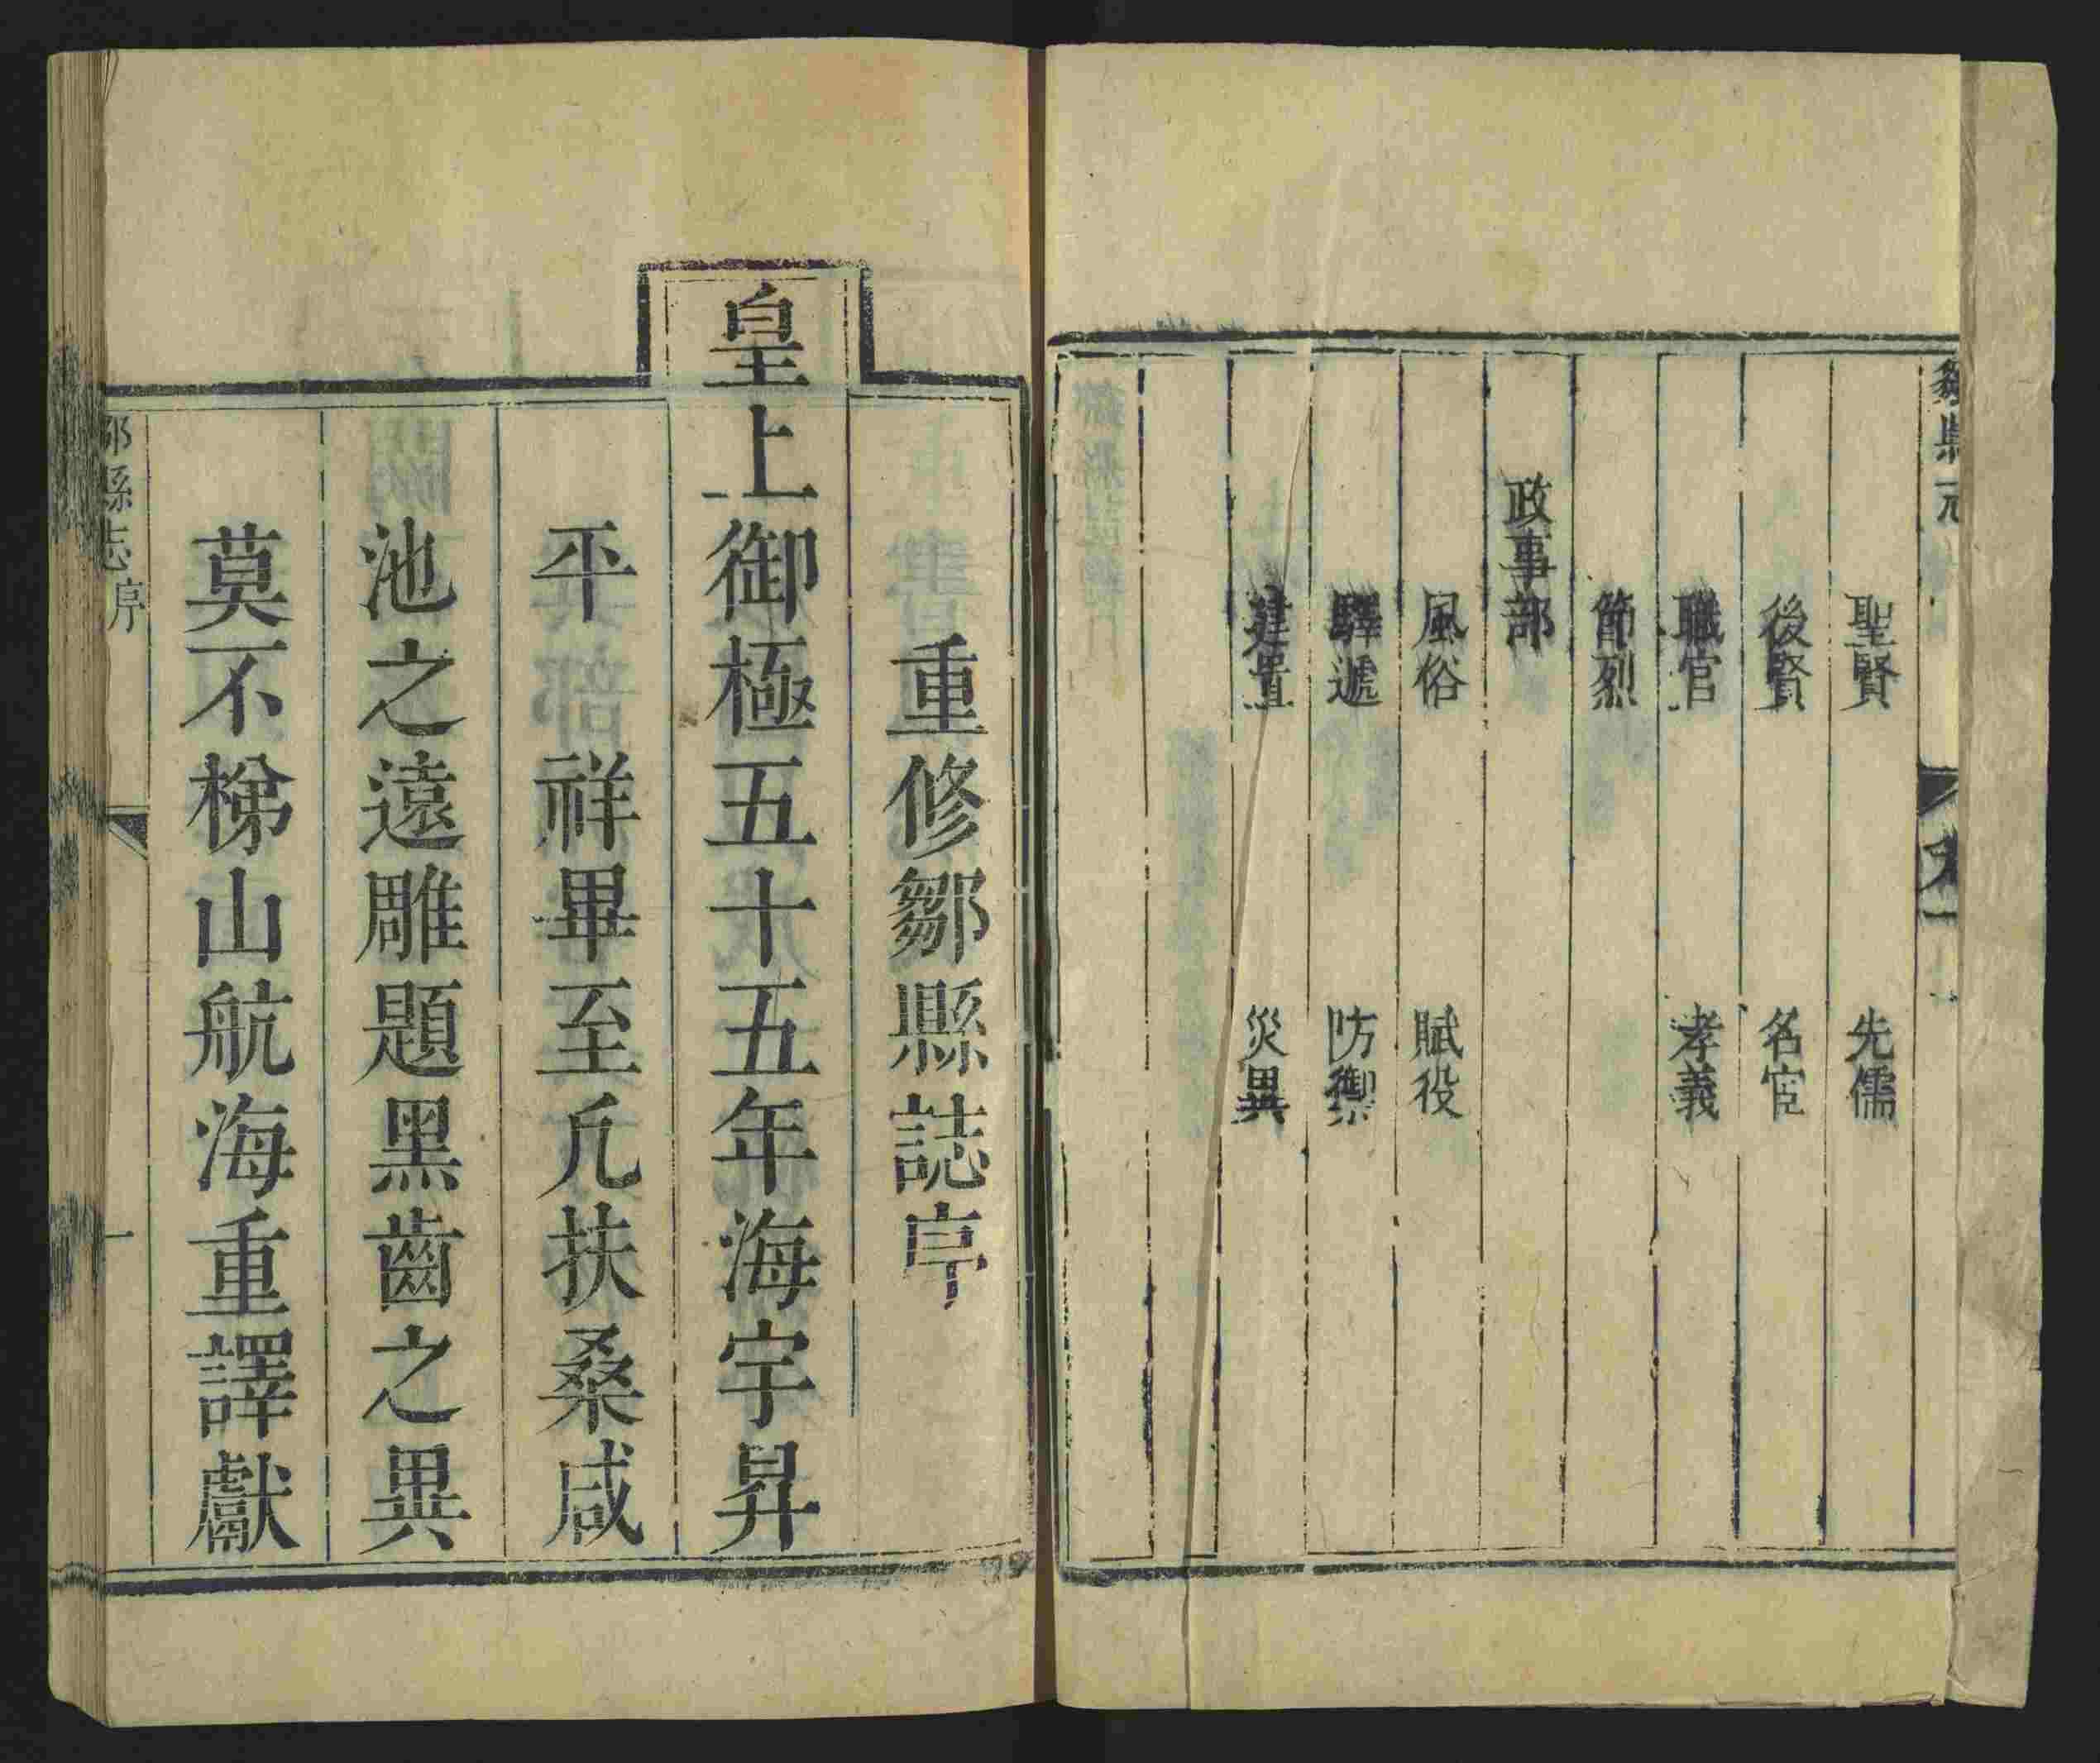 聖賢 先儒
後賢 名宦
職官 孝義
節烈
政事部
風俗 賦役
驛遞 防禦
建置 災異
重修鄒縣誌序
皇上御極五十五年海宇昇
平 祥畢至凢扶桑咸
池之遠雕題黑齒之異
莫不梯山航海重譯獻
鄒縣志 序 一